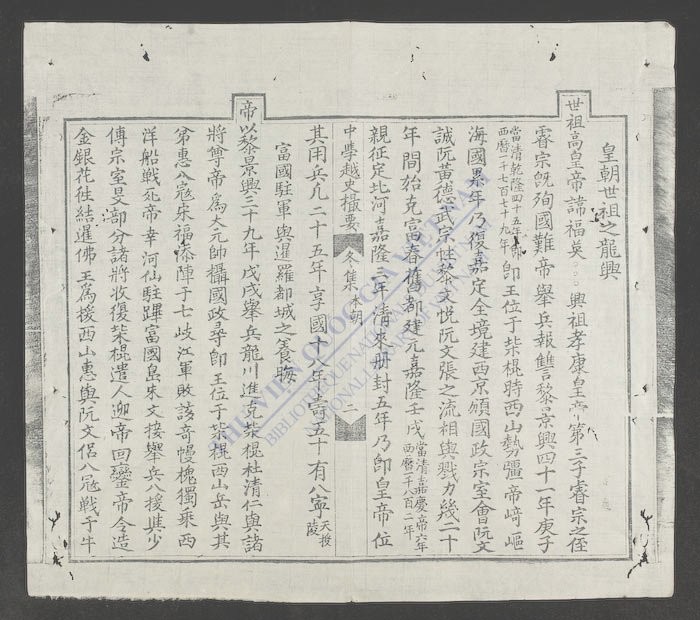 皇朝世祖之龍興
世祖高皇帝諱福英⋯興祖孝康皇帝第三子睿宗之侄
睿宗旣殉國難帝舉兵報讐黎景興四十一年庚子
當清乾隆四十五年
西曆一千七百七十九年卽王位于柴棍時西山勢彊帝﨑嶇
海國累年乃復嘉定全境建西京頒國政宗室會阮文
誠阮黃德武宗性黎文悅阮文張之流相與戮力幾二十
年間始克富春舊都建元嘉隆壬戌當清嘉慶帝六年
西曆一千八百二年
親征定北河嘉隆三年清來册封五年乃卽皇帝位
中學越史撮要 冬集 本朝 二
其用兵凡二十五年享國十八年壽五十有八寧天授
陵
富國駐軍與暹羅都城之養晦
帝以黎景興三十九年戊戌舉兵龍川進克柴棍杜清仁與諸
將尊帝爲大元帥攝國政尋卽王位于柴棍西山岳與其
弟惠入寇朱福 陣于七岐江軍敗該奇幔槐獨乘西
洋船戰死帝幸河仙駐蹕富國島朱文接舉兵入援 少
傅宗室旻部分諸將收復柴棍遣人迎帝回鑾帝令造
金銀花徃結暹佛王爲援西山惠與阮文侶入寇戰于牛
THƯ VIỆN QUỐC GIA VIỆT NAM
BIBLIOTHÈQUE NATIONALE DU VIETNAM
NATIONAL LIBRARY OF VIETNAM